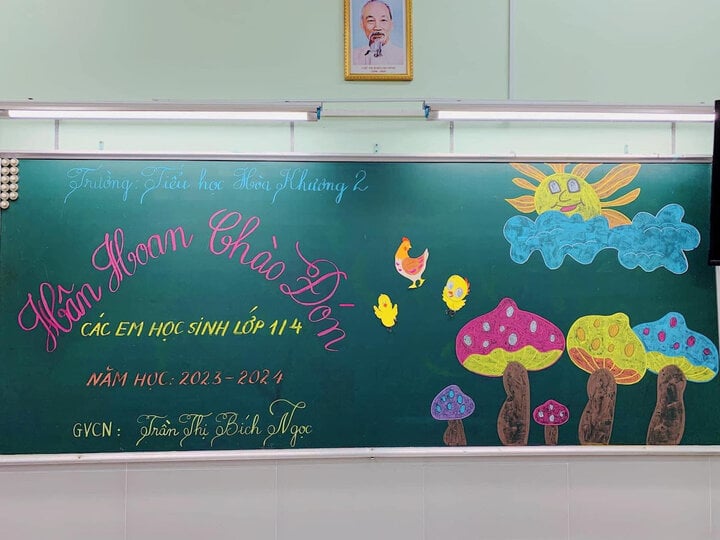 Trường: Tiểu học Hòa Khương 2
Hân Hoan Chào Đón
CÁC EM HỌC SINH LỚP 1/4
NĂM HỌC: 2023-2024
GVCN: Trần Thị Bích Ngọc